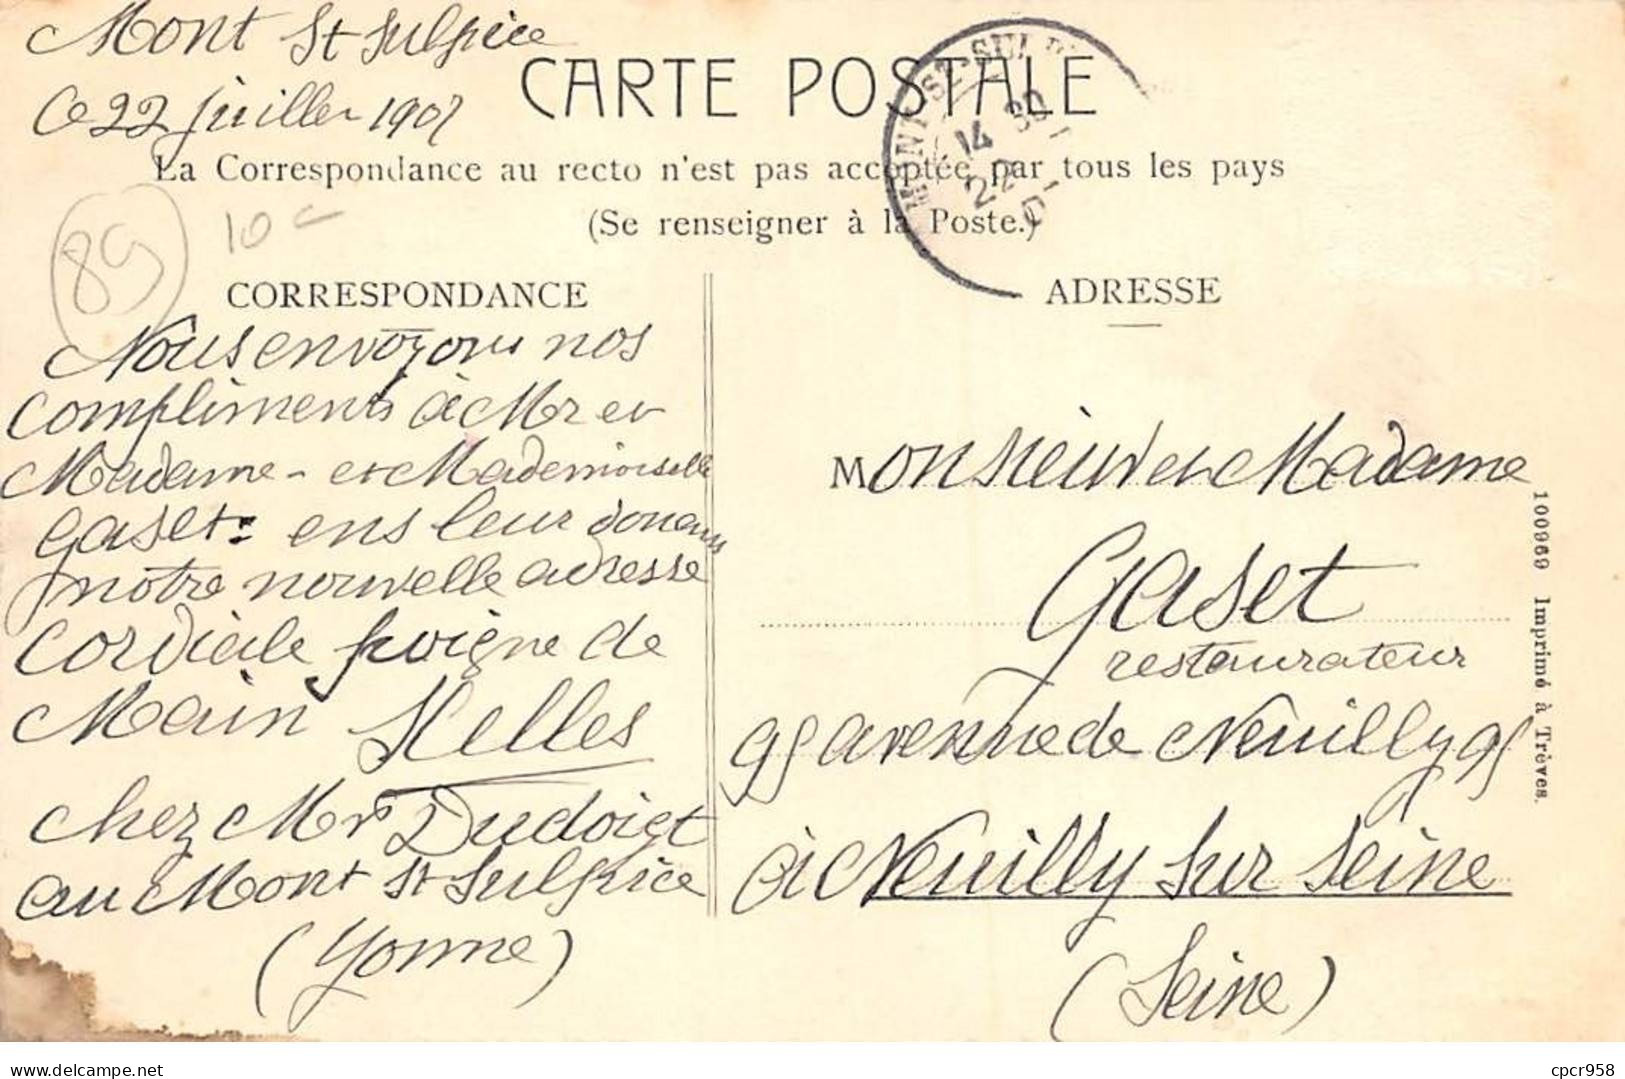 Mont St Sulpice
Ce 22 juillet 1907
CARTE POSTALE
La Correspondance au recto n'est pas acceptée par tous les pays
(Se renseigner à la Poste.)
MONT-St-SULPI
14 30
22
89
10 c
CORRESPONDANCE
Nous envoyons nos
compliments à Mr et
Madame - et Mademoiselle
Gaset: ens leur donans
notre nouvelle adresse
cordiale poigne de
Main Helles
chez Mr Dudoigt
au Mont St Sulpice
(Yonne)
ADRESSE
Monsieur et Madame
Gaset
restaurateur
95 avenue de Neuilly 95
à Neuilly sur Seine
(Seine)
100969 Imprimé à Trèves.
delcampe.net
cpcr958